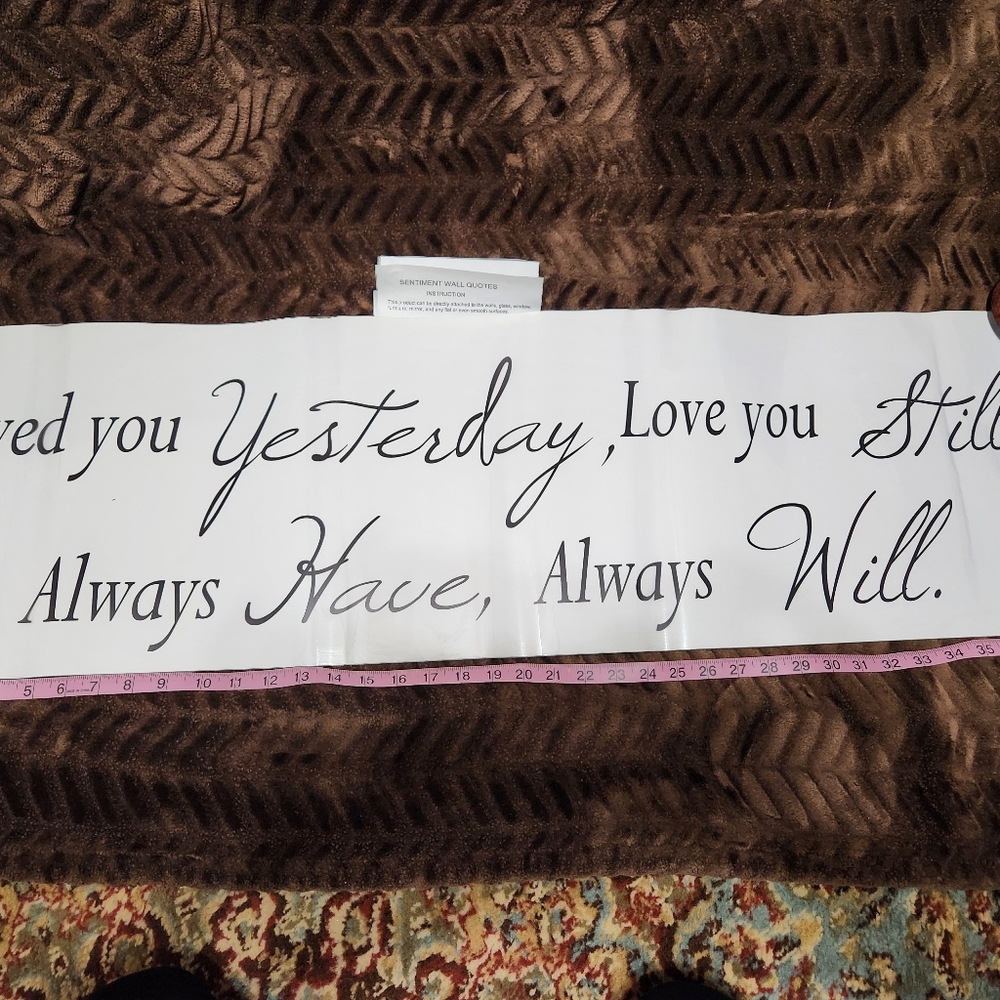 SENTIMENT WALL QUOTES
INSTRUCTION
This product can be directly attached to the walls, glass, window,
furniture, mirror, and any flat or even smooth surfaces.
ved you Yesterday, Love you Still
Always Have, Always Will.
5 6 7 8 9 10 11 12 13 14 15 16 17 18 19 20 21 22 23 24 25 26 27 28 29 30 31 32 33 34 35